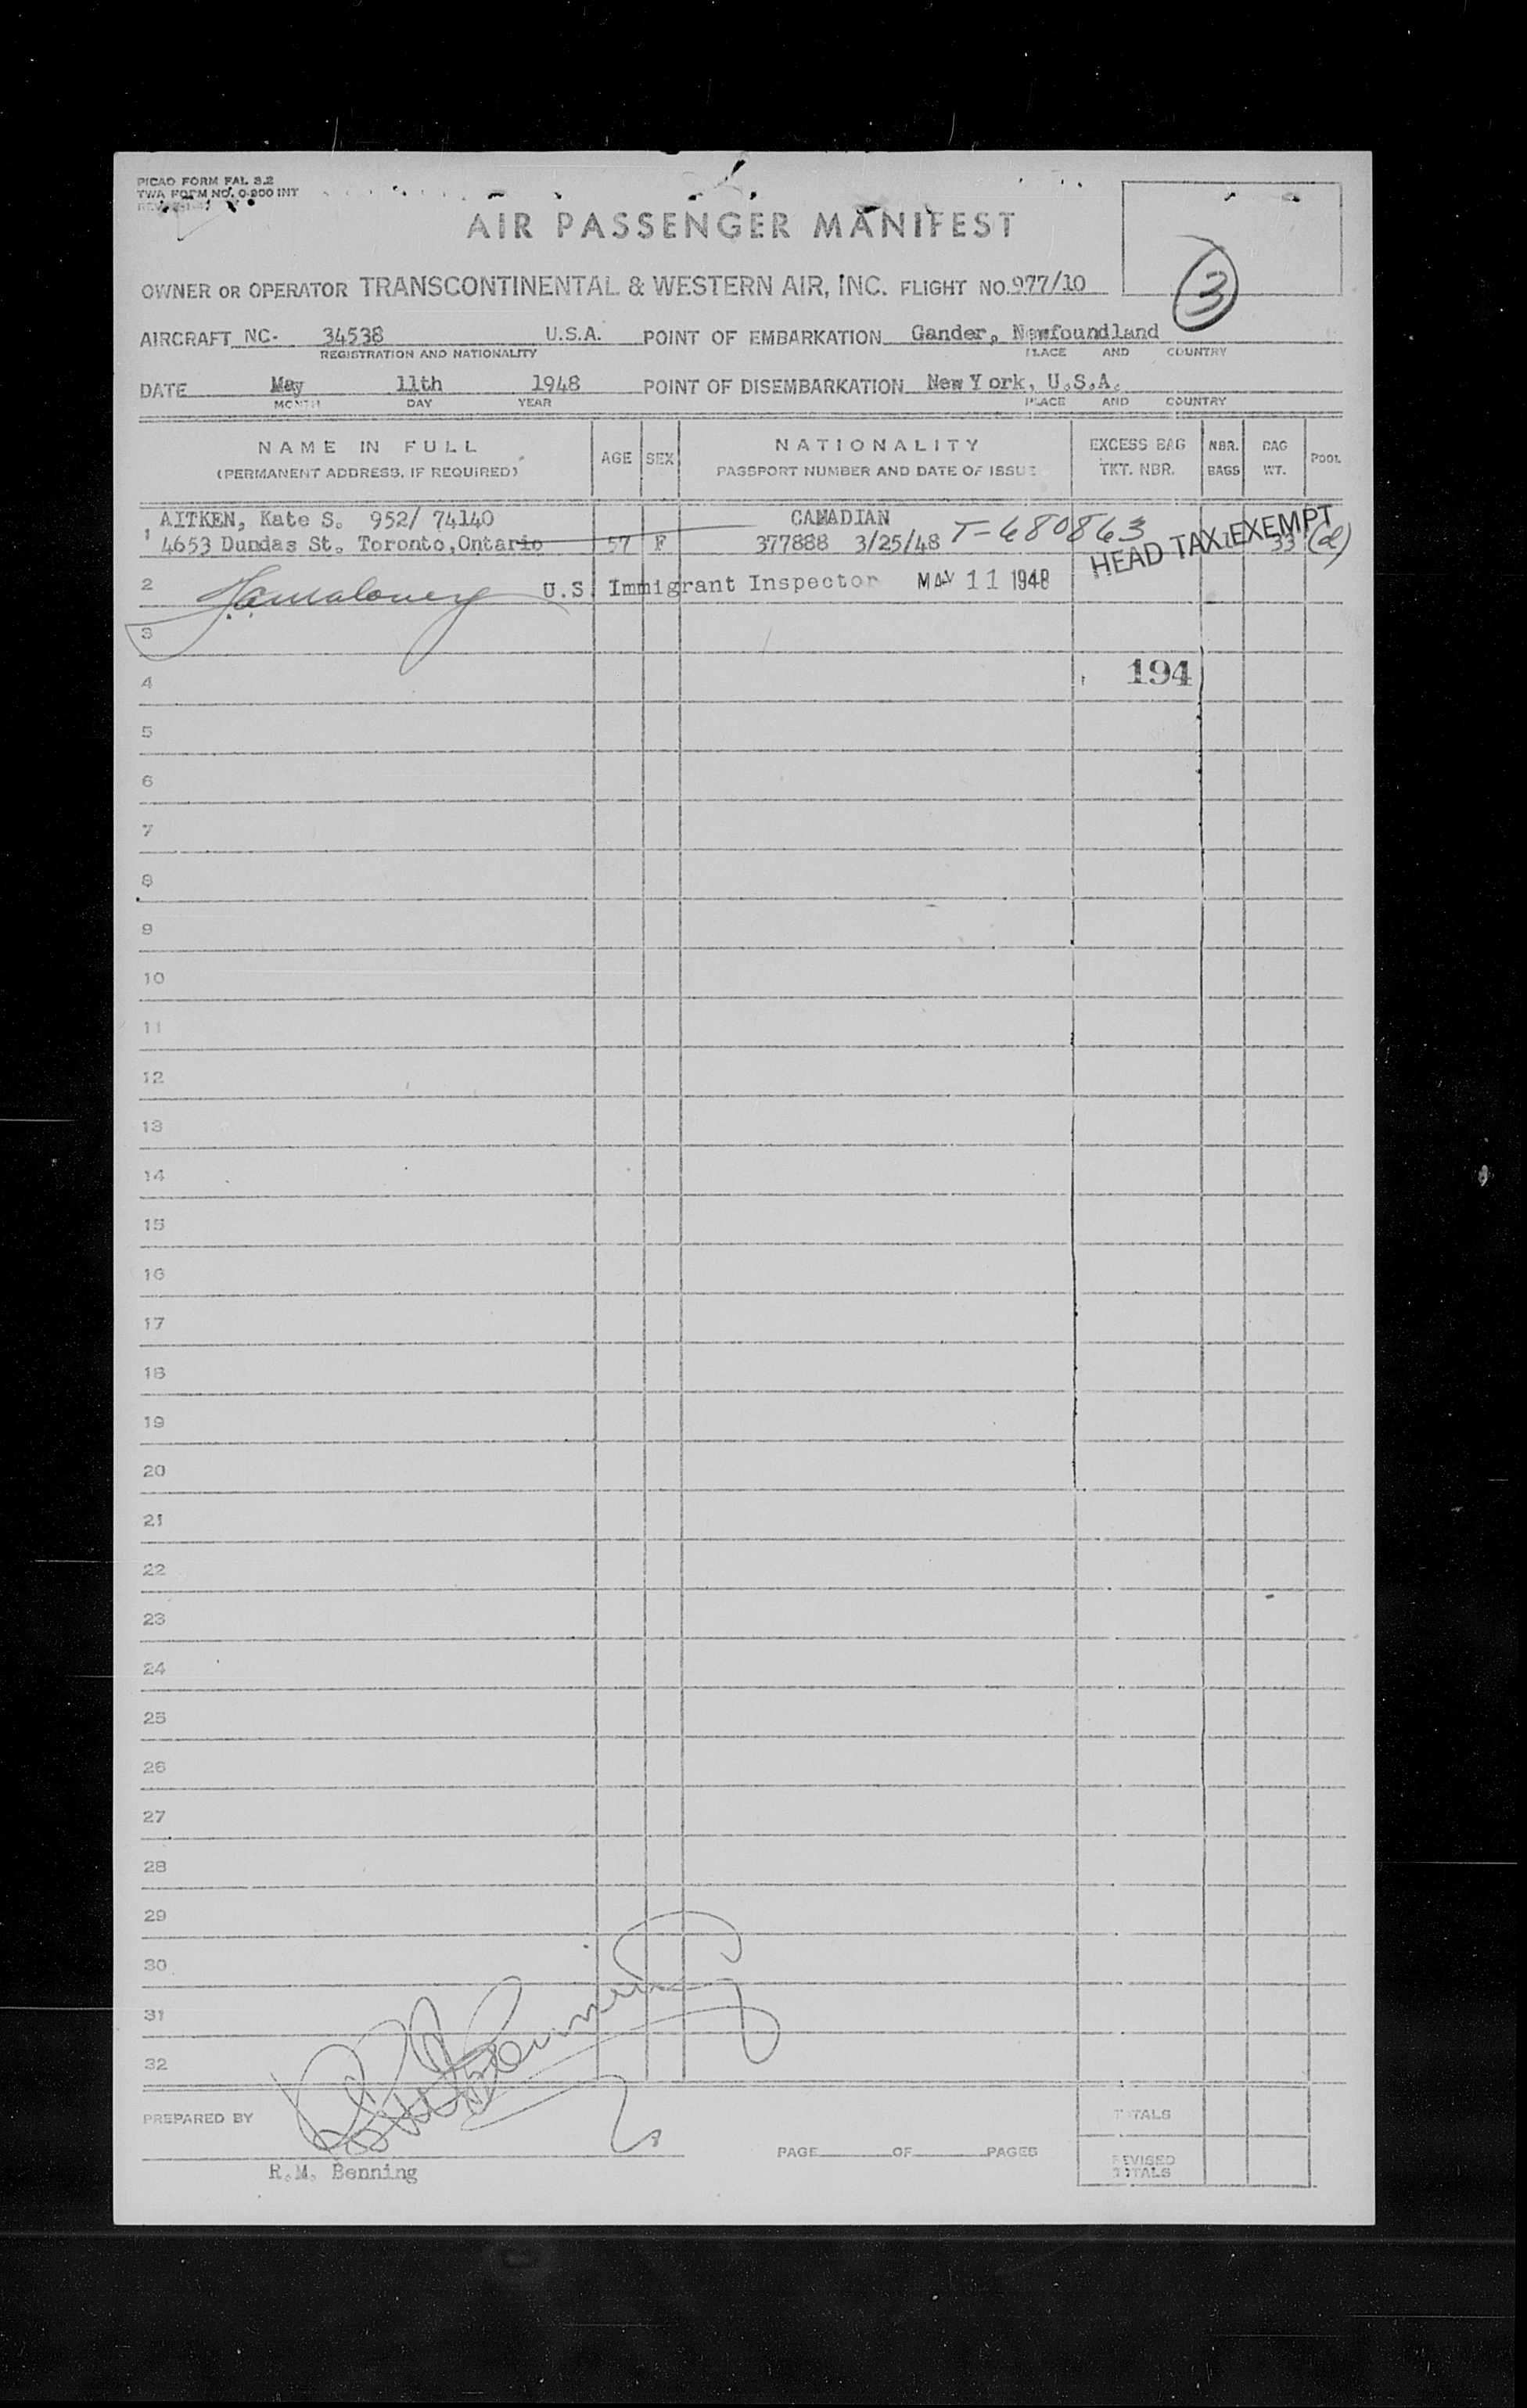 PICAO FORM FAL 3.2
TWA FORM NO. O-200 INT
AIR PASSENGER MANIFEST
OWNER OR OPERATOR TRANSCONTINENTAL & WESTERN AIR, INC. FLIGHT NO. 977/10
3
AIRCRAFT NC- 34538 U.S.A. POINT OF EMBARKATION Gander, Newfoundland
REGISTRATION AND NATIONALITY PLACE AND COUNTRY
DATE May 11th 1948 POINT OF DISEMBARKATION New York, U.S.A.
MONTH DAY YEAR PLACE AND COUNTRY
NAME IN FULL AGE SEX NATIONALITY EXCESS BAG NBR. BAG POOL
(PERMANENT ADDRESS, IF REQUIRED) PASSPORT NUMBER AND DATE OF ISSUE TKT. NBR. BAGS WT.
AITKEN, Kate S. 952/ 74140 CANADIAN
1 4653 Dundas St. Toronto, Ontario 57 F 377888 3/25/48 T-680863 HEAD TAX EXEMPT 33 (d)
2 U.S. Immigrant Inspector MAY 11 1948
3
4 194
5
6
7
8
9
10
11
12
13
14
15
16
17
18
19
20
21
22
23
24
25
26
27
28
29
30
31
32
PREPARED BY TOTALS
PAGE OF PAGES
R.M. Benning REVISED TOTALS